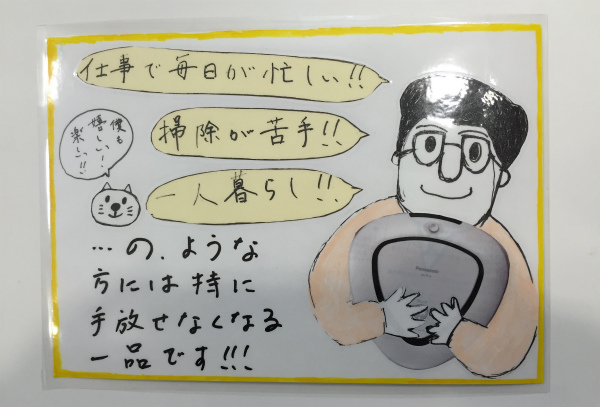 仕事で毎日が忙しい!!
掃除が苦手!!
一人暮らし!!
僕も
嬉しい!
楽しい!!
…の、ような
方には持に
手放せなくなる
一品です!!!
Panasonic